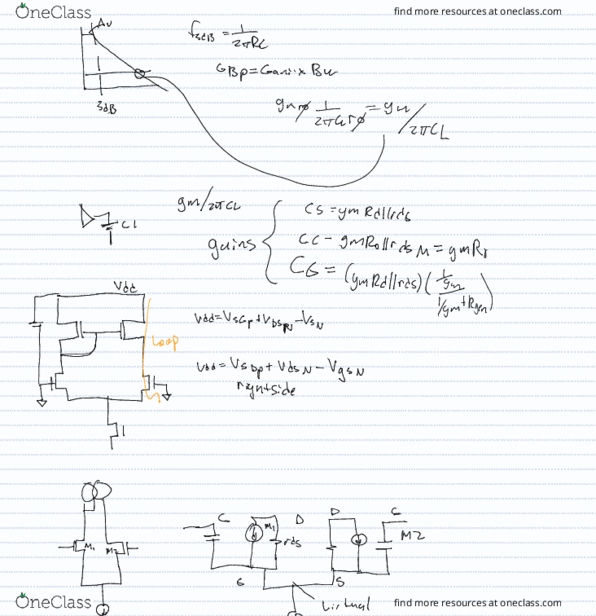 OneClass
find more resources at oneclass.com
Av
3dB
f3dB = 1/2πRC
GBp = Gain x Bw
gmro 1/2πCLro = gm/2πCL
C1
gm/2πCL
gains
CS = gm Rd||rds
CG = (gm Rd||rds)(1/gm / 1/gm + Rgen)
Vdd
Vdd = VsGp + VDSpN - VsN
Loop
Vdd = VsDp + VdsN - VgsN
rightside
M1
M2
C
M1
D
rds
D
C
M2
G
S
virtual
OneClass
find more resources at oneclass.com